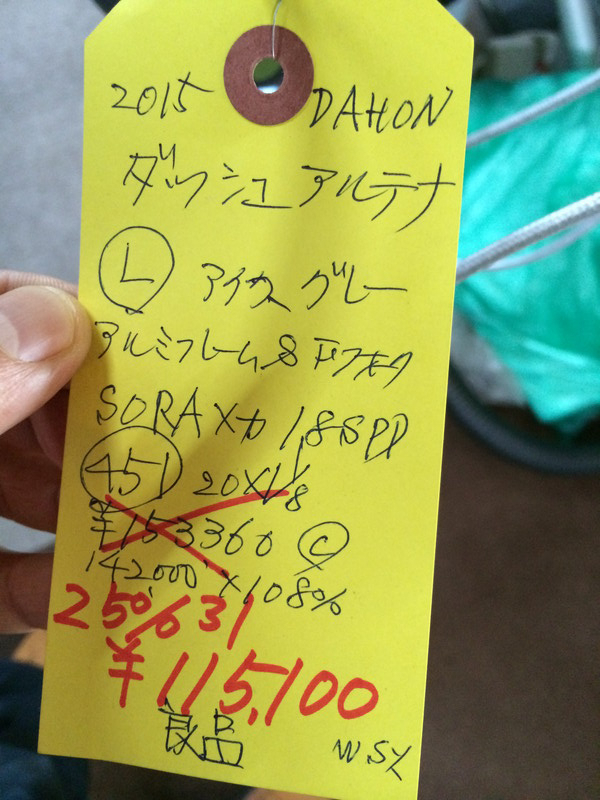 2015 DAHON
ダッシュアルテナ
L アイスグレー
アルミフレーム&下フォーク
SORAメカ 18SPD
451 20×1 1/8
¥153360 C
142,000 ×108%
25% 引
¥115,100
良品